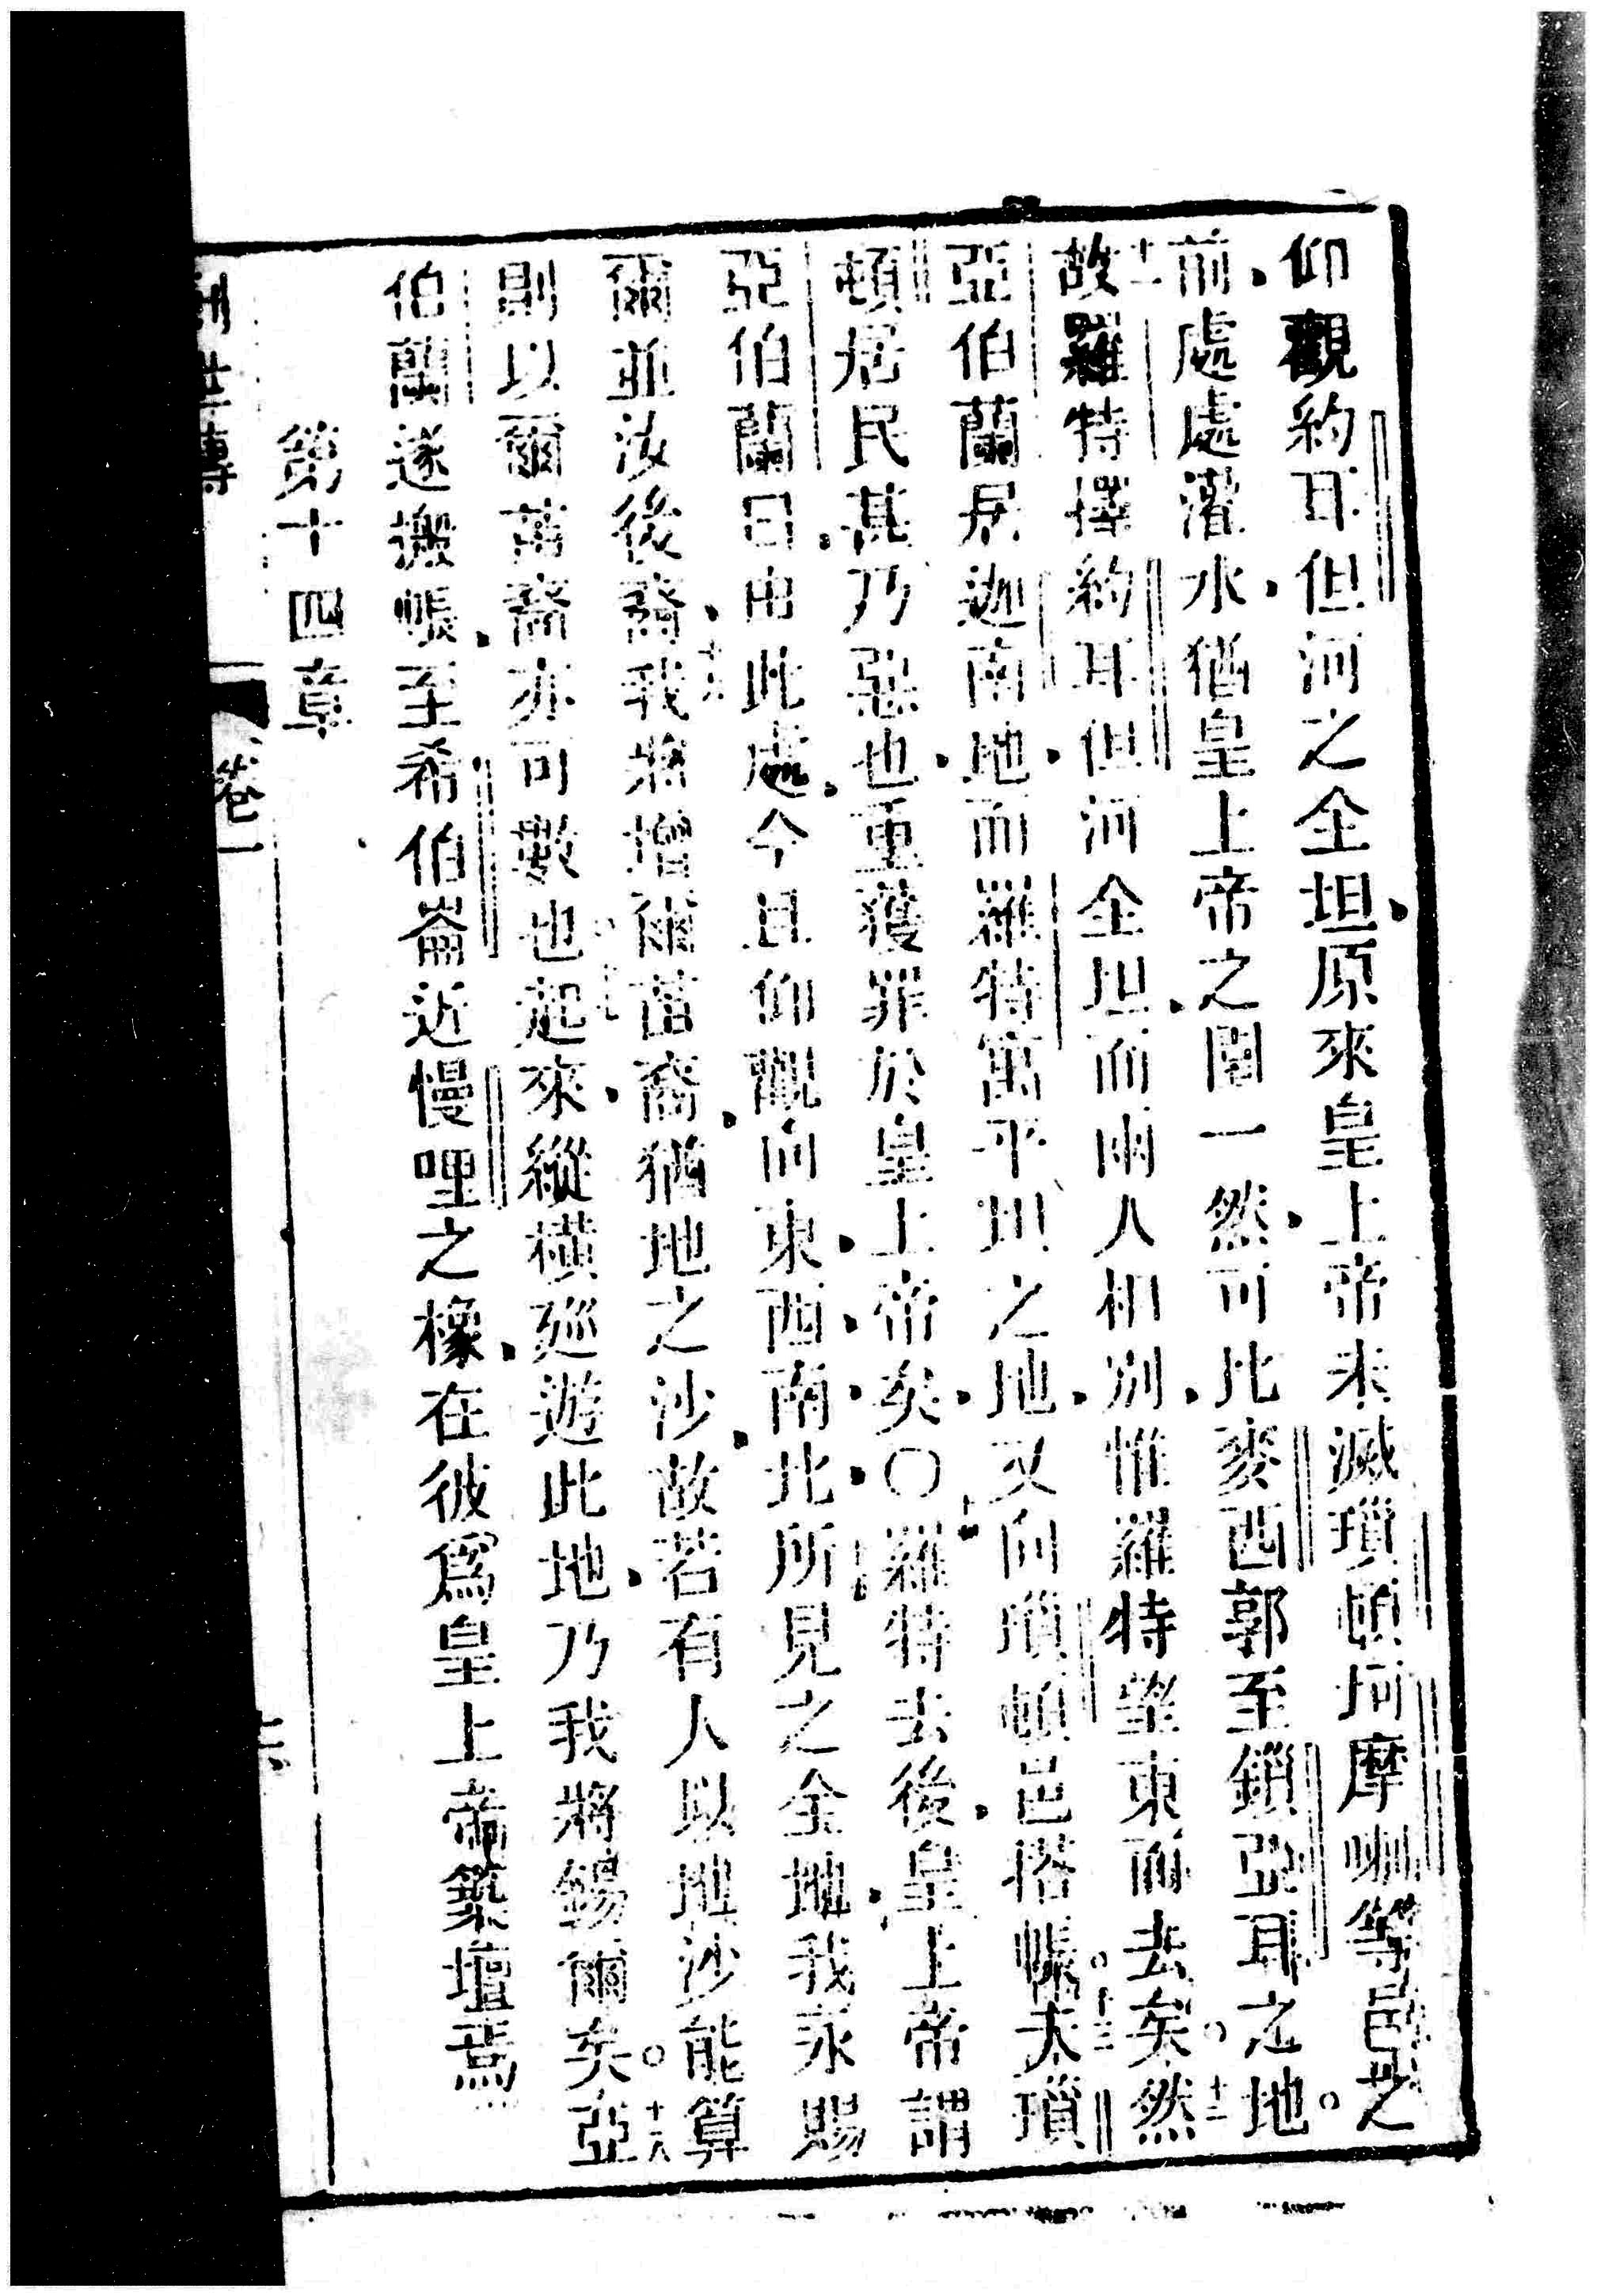 仰觀約耳但河之全坦、原來皇上帝未滅瑣頓坷摩㖿等邑之
前、處處灌水、猶皇上帝之園一然、可比麥西郭至鎖亞耳之地。
十一故羅特擇約耳但河全坦、而兩人相別、惟羅特望東而去矣。十二然
亞伯蘭居迦南地、而羅特寓平坦之地、又向瑣頓邑搭帳。十三夫瑣
頓居民甚乃惡也、重獲罪於皇上帝矣、〇十四羅特去後、皇上帝謂
亞伯蘭曰、由此處、今且仰觀向東、西、南、北、十五所見之全地、我永賜
爾並汝後裔、十六我將增爾苗裔、猶地之沙、故若有人以地沙能算
則以爾苗裔亦可數也。十七起來、縱橫廵遊此地、乃我將錫爾矣。十八亞
伯蘭遂搬帳、至希伯崙近慢哩之橡、在彼爲皇上帝築壇焉
第十四章
創世傳 卷一